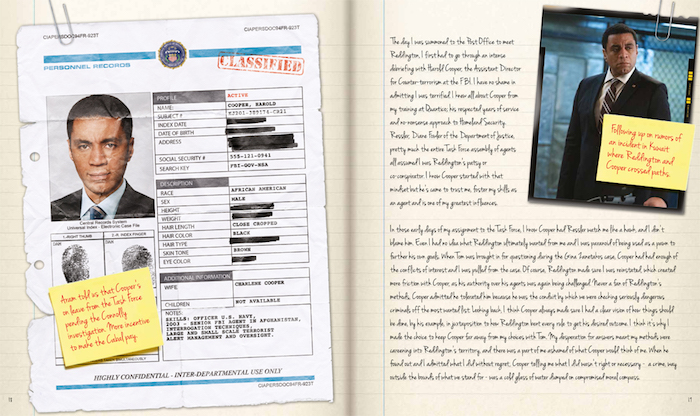 CIAPERSDOC94FR-923T
CIAPERSDOC94FR-923T
PERSONNEL RECORDS
CLASSIFIED
PROFILE ACTIVE
NAME: COOPER, HAROLD
SUBJECT #
INDEX DATE
DATE OF BIRTH
ADDRESS
SOCIAL SECURITY # 555-121-0941
SEARCH KEY FBI-GOV-NSA
DESCRIPTION
RACE AFRICAN AMERICAN
SEX MALE
HEIGHT
WEIGHT
HAIR LENGTH CLOSE CROPPED
HAIR COLOR BLACK
HAIR TYPE
SKIN TONE BROWN
EYE COLOR
ADDITIONAL INFORMATION
WIFE CHARLENE COOPER
CHILDREN NOT AVAILABLE
NOTES:
SKILLS: OFFICER U.S. NAVY,
2003 - SENIOR FBI AGENT IN AFGHANISTAN,
INTERROGATION TECHNIQUES,
LARGE AND SMALL SCALE TERRORIST
ALERT MANAGEMENT AND OVERSIGHT.
Central Records System
Universal Index - Electronic Case File
Aram told us that Cooper's
on leave from the Task Force
pending the Connolly
investigation. More incentive
to make the Cabal pay.
HIGHLY CONFIDENTIAL - INTER-DEPARTMENTAL USE ONLY
CIAPERSDOC94FR-923T
The day I was summoned to the Post Office to meet
Reddington, I first had to go through an intense
debriefing with Harold Cooper, the Assistant Director
for Counter-terrorism at the F.B.I. I have no shame in
admitting I was terrified. I knew all about Cooper from
my training at Quantico; his respected years of service
and no-nonsense approach to Homeland Security.
Ressler, Diane Fowler of the Department of Justice,
pretty much the entire Task Force assembly of agents
all assumed I was Reddington's patsy or
co-conspirator. I know Cooper started with that
mindset but he's come to trust me, foster my skills as
an agent and is one of my greatest influences.
Following up on rumors of
an incident in Kuwait
where Reddington and
Cooper crossed paths.
In those early days of my assignment to the Task Force, I knew Cooper had Ressler watch me like a hawk, and I don't
blame him. Even I had no idea what Reddington ultimately wanted from me and I was paranoid of being used as a pawn to
further his own goals. When Tom was brought in for questioning during the Gina Zanetakos case, Cooper had had enough of
the conflicts of interest and I was pulled from the case. Of course, Reddington made sure I was reinstated, which created
more friction with Cooper, as his authority over his agents was again being challenged. Never a fan of Reddington's
methods, Cooper admitted he tolerated him because he was the conduit by which we were checking seriously dangerous
criminals off the most wanted list. Looking back, I think Cooper always made sure I had a clear vision of how things should
be done, by his example, in juxtaposition to how Reddington bent every rule to get his desired outcome. I think it's why I
made the choice to keep Cooper far away from my choices with Tom. My desperation for answers meant my methods were
careening into Reddington's territory, and there was a part of me ashamed of what Cooper would think of me. When he
found out and I admitted what I did without regret, Cooper telling me what I did wasn't right or necessary - a crime, way
outside the bounds of what we stand for - was a cold glass of water dumped on compromised moral compass.